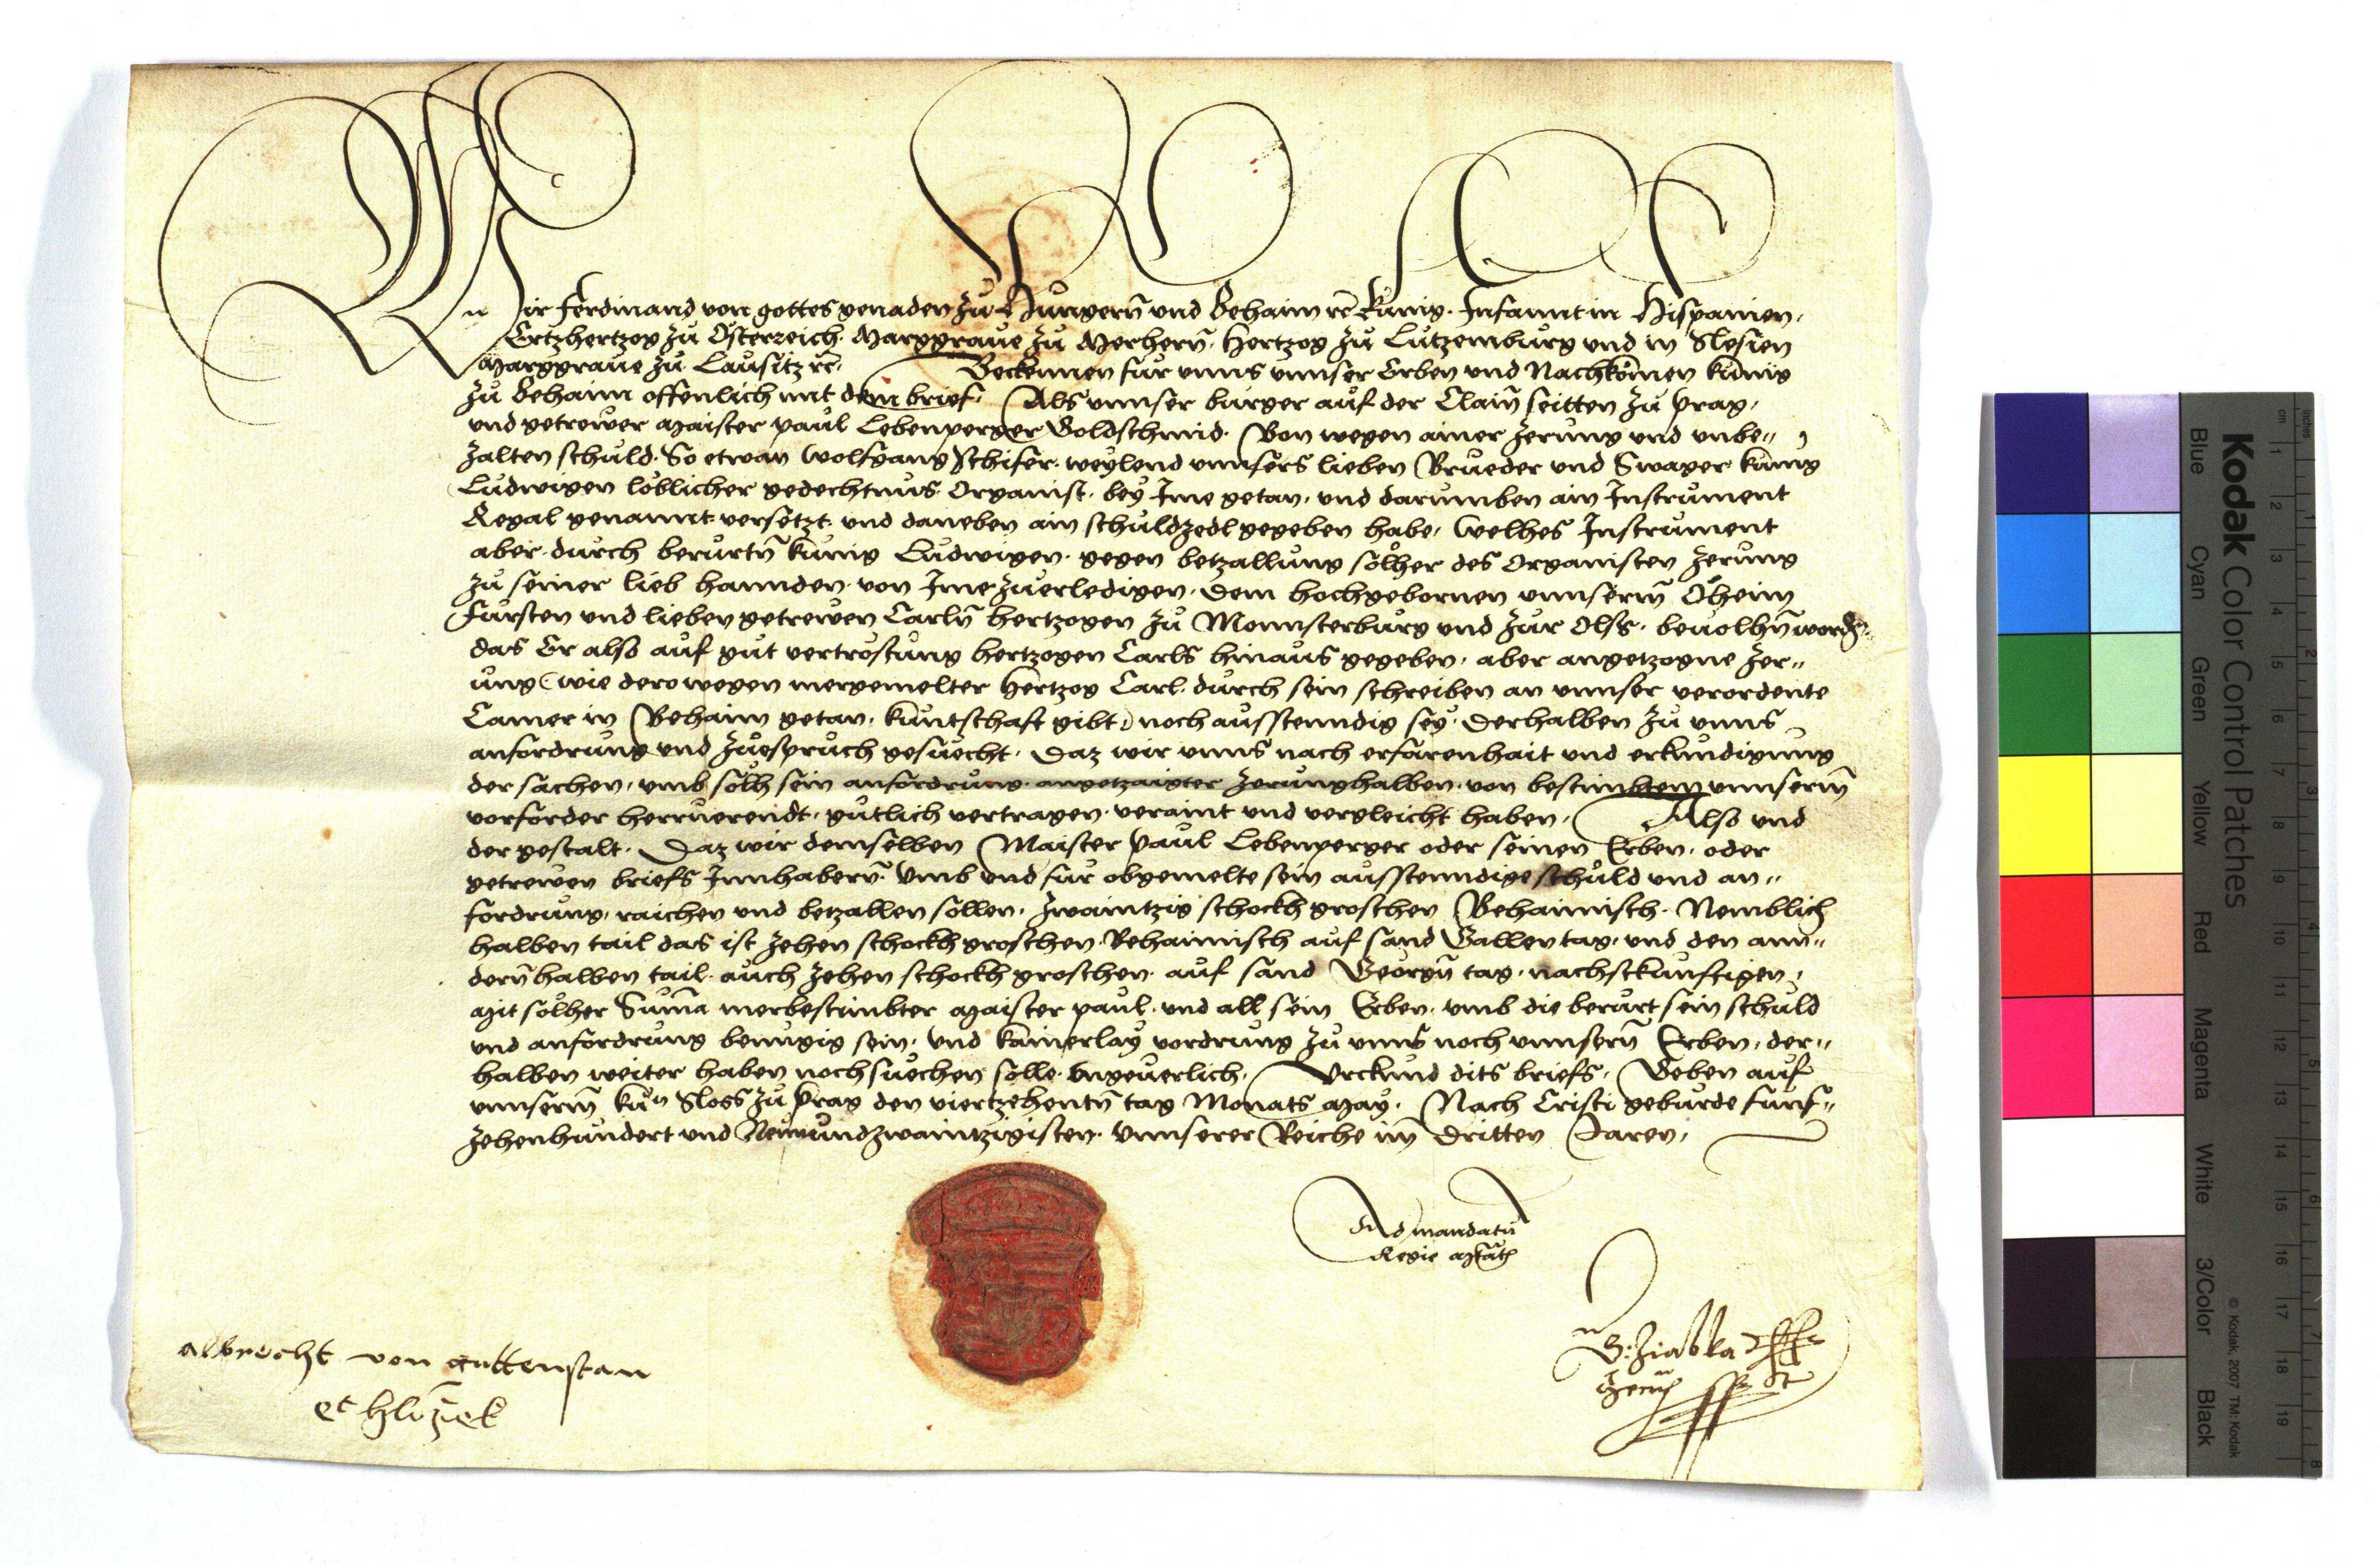 Wir Ferdinand von gottes genaden zu Hungern̄ und Behaim ꝛc̄ Kunig. Infannt in Hispanien,
Ertzhertzog zu Österreich. Marggraue zu Merhern̄. Hertzog zu Lutzemburg und in Slesien
Marggraue zu Lausitz ꝛc̄. Bekennen fur unns unnser Erben und Nachkomen Kunig
zu Behaim offenlich mit dem brief. Als unnser burger auf der Clain̄ seitten zu Prag,
und getrewer Maister Paul Lebenperger Goldschmid. Von wegen ainer Zerung und unbe„
zalten schuld. So etwan Wolfgang Schifer. weylend unnsers lieben Brueder und Swager Kunig
Ludwigen loblicher gedechtnus. Organist. bey Ime getan, und darumben ain Instrument
Regal genannt versetzt und daneben ain schuldzedl gegeben habe, Welhes Instrument
aber durch berurtn̄ Kunig Ludwigen. gegen betzallung solher des Organisten Zerung
zu seiner lieb hannden von Ime zuerledigen. dem hochgebornen unnserm̄ Öheim
Fursten und lieben getrewen Carln̄ Hertzogen zu Monnsterburg und zur Olss. beuolhn̄ worden.
das Er also auf gut vertrostung hertzogen Carls hinaus gegeben. aber angetzogne Zer„
ung (wie derowegen mergemelter Hertzog Carl. durch sein schreiben an unnser verordente
Camer in Behaim getan, kuntschaft gibt) noch ausstenndig sey. Derhalben zu unns
anfordrung und zuespruch gesuecht. Daz wir unns nach erfarenhait und erkundigung
der sachen, umb solh sein anfordrung angetzaigter Zerung halben. von bestimbtem unnserm̄
vorforder herruerendt, gutlich vertragen. veraint und vergleicht haben. Also und
der gestalt. Daz wir demselben Maister Paul Lebenperger oder seinen Erben, oder
getrewen briefs Innhabern̄. Umb und fur obgemelte sein ausstenndige schuld und an„
fordrung, raichen und betzallen sollen, zwaintzig schockh groschen Behaimisch. Nemblich
halben tail das ist zehen schockh groschen Behaimisch auf sand Gallen tag, und den ann„
dern̄ halben tail. auch zehen schockh groschen auf sand Georgn̄ tag, nachstkunftigen,
Mit solher Sum̄a merbestimbter Maister Paul, und all sein Erben, umb die berurt sein schuld
und anfordrung benugig sein, und kainerlay vordrung zu unns noch unnsern̄ Erben, der„
halben weiter haben noch suechen solle. Ungeuerlich. Urckund dits briefs. Geben auf
unnserm̄ Kun Sloss zu Prag den viertzehentn̄ tag Monats May. Nach Cristi geburde funf„
zehenhundert und Neunundzwaintzigisten. Unnserer Reiche im̄ dritten Jaren,
Ad mandatū
Regie Mtātis
albrecht von guttenstan